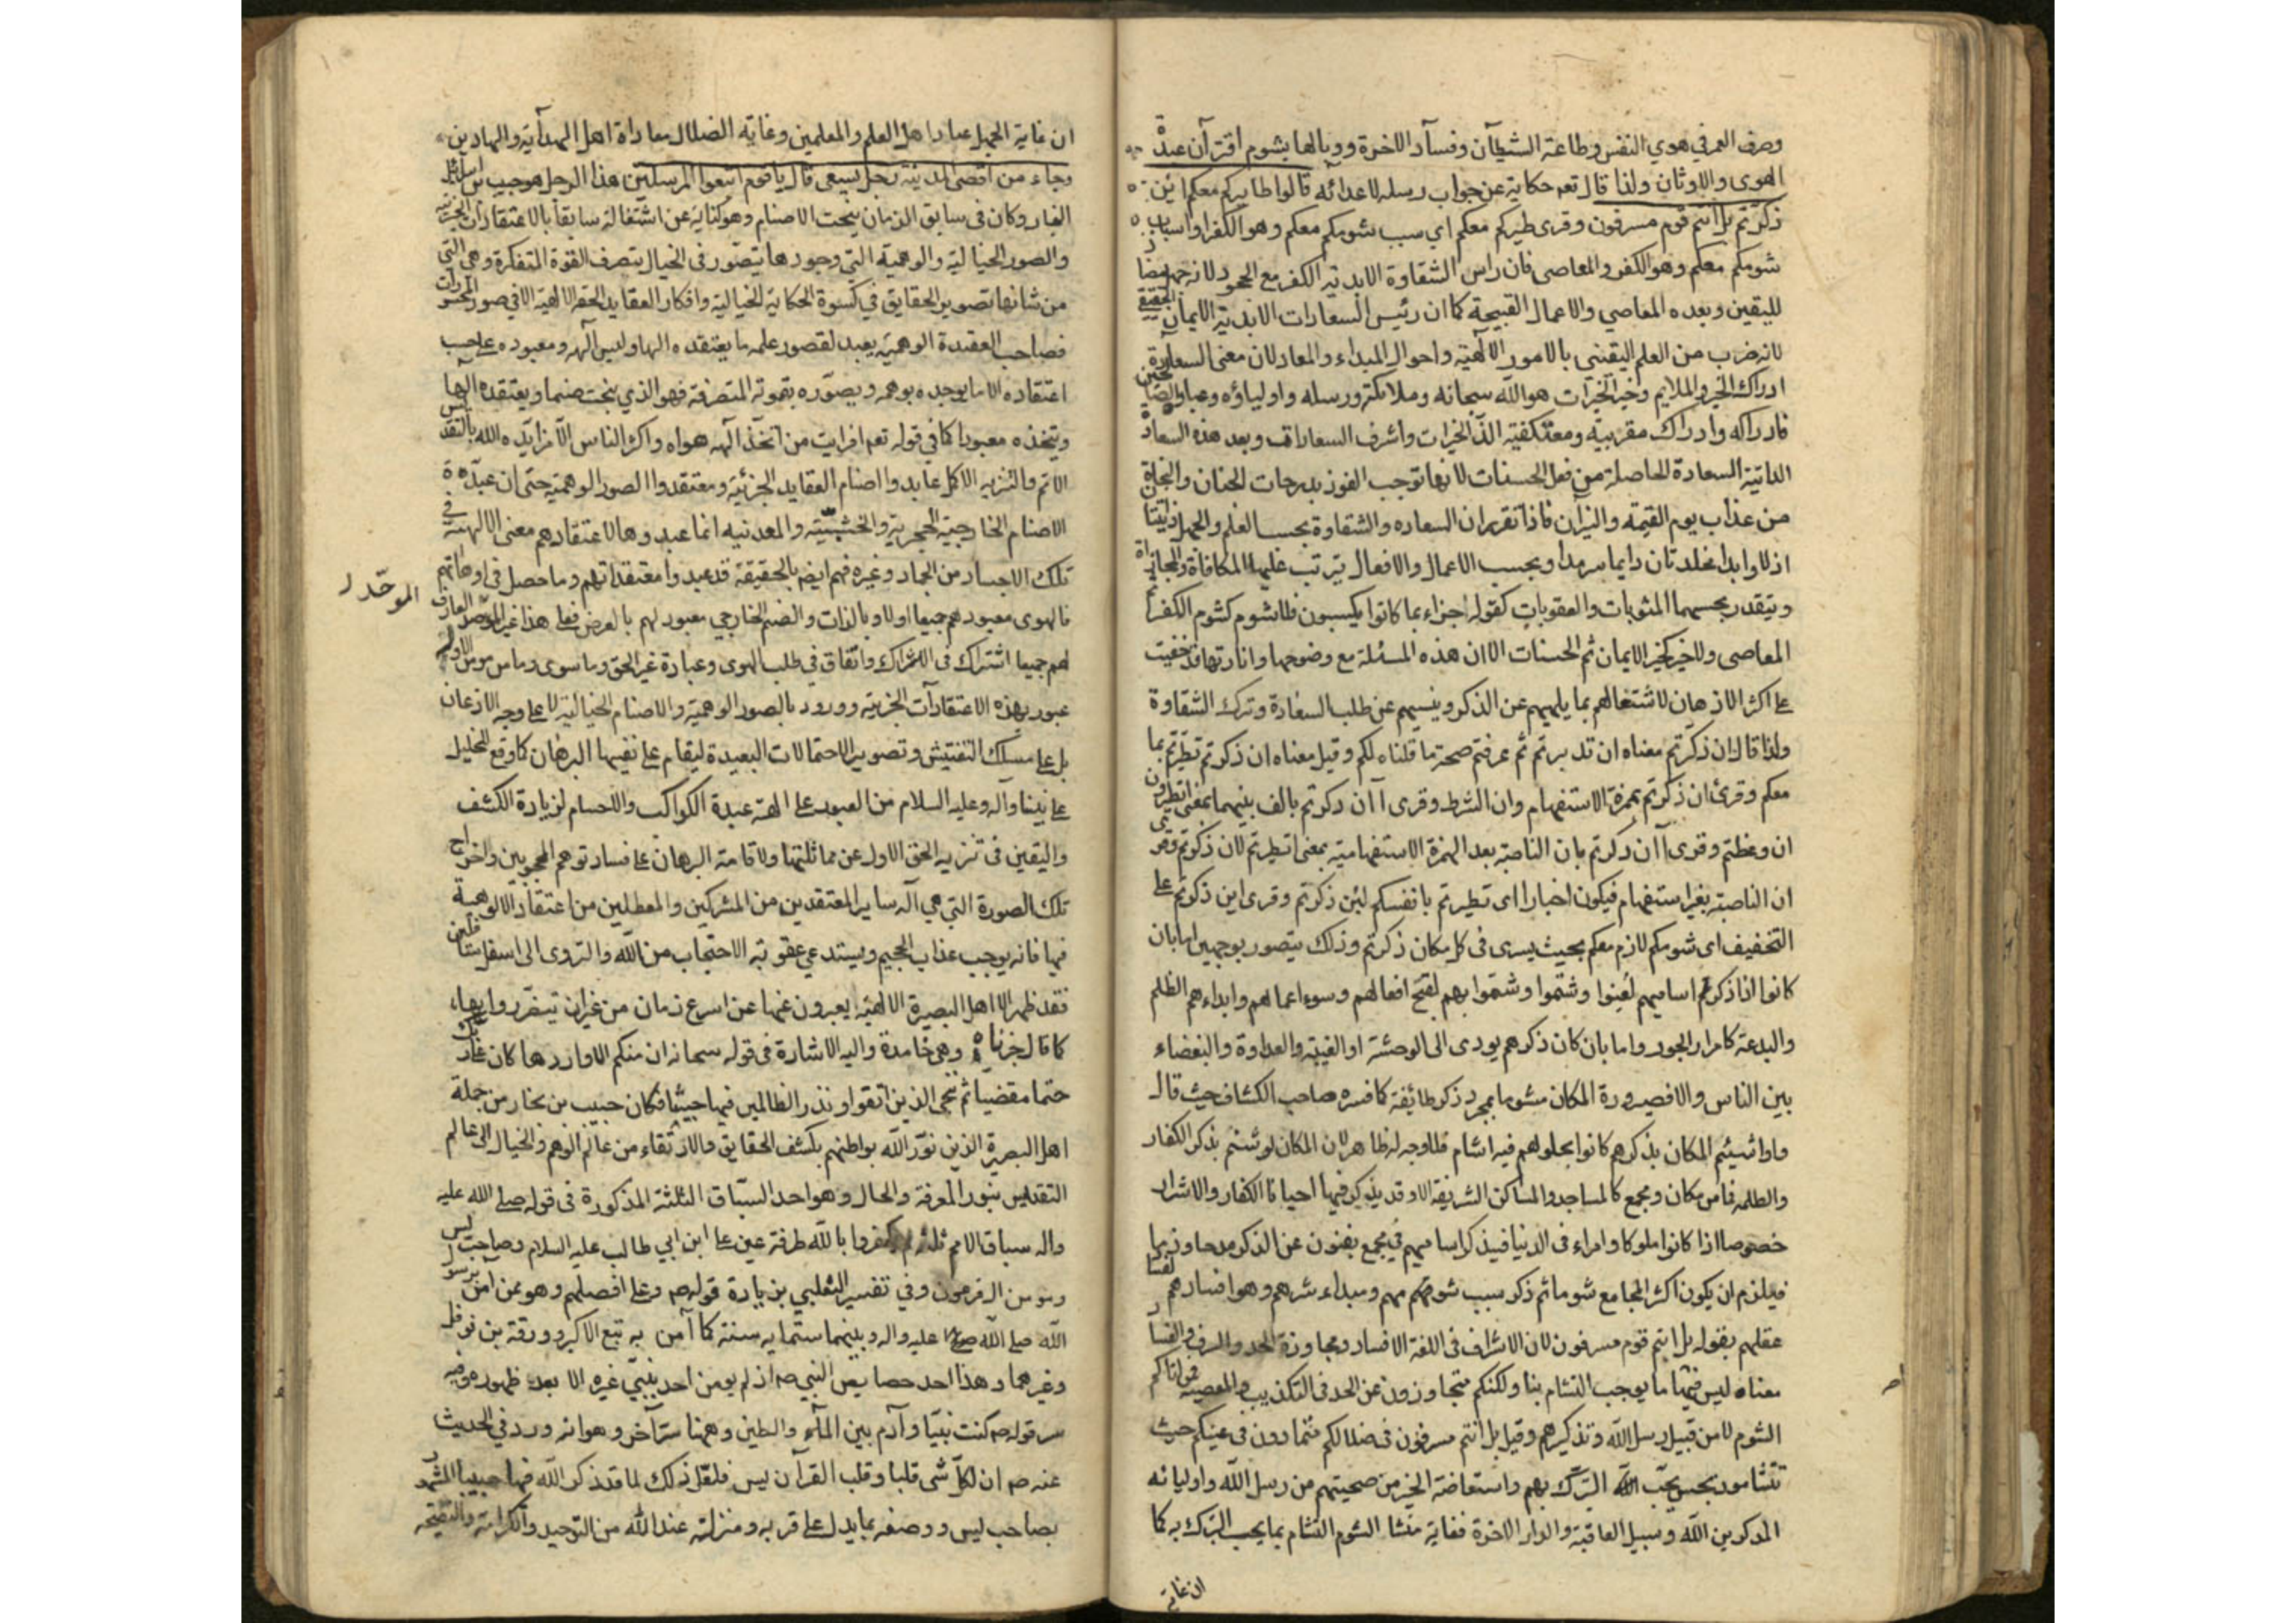 وصرف العمر في هوي النفس وطاعة الشيطان وفساد الاخرة ووبالها بشوم اقتران عبدة
الهوى والاوثان ولذا قال تعم حكاية عن جواب رسله لاعدائه قالوا طايركم معكم ائن
ذكرتم بل انتم قوم مسرفون وقرى طيركم معكم اي سبب شومكم معكم وهو الكفر او اسباب
شومكم معكم وهو الكفر والمعاصي فان راس الشقاوة الابدية الكفر مع الجحود لانه جهل مضاد
لليقين وبعده المعاصي والاعمال القبيحة كما ان رئيس السعادات الابدية الايمان الحقيقي
لانه ضرب من العلم اليقيني بالامور الالهية واحوال المبداء والمعاد لان معنى السعادة
ادراك الخير والملايم وخير الخيرات هو الله سبحانه وملائكته ورسله واولياؤه وعباده الصالحين
فادراكه وادراك مقربيه ومعتكفيه الذ الخيرات واشرف السعادات وبعد هذه السعادة
الذاتية السعادة الحاصلة من فعل الحسنات لانها توجب الفوز بدرجات الجنان والنجاة
من عذاب يوم القيمة والنيران فاذا تقرر ان السعاده والشقاوة بحسب العلم والجهل ذاتيتان
ازلا وابدا مخلدتان دايما سرمدا وبحسب الاعمال والافعال يترتب عليها المكافاة والمجازاة
ويتقدر بحسبهما المثوبات والعقوبات كقوله جزاء بما كانوا يكسبون فلا شوم كشوم الكفر ثم
المعاصي ولا خير كخير الايمان ثم الحسنات الا ان هذه المسئلة مع وضوحها وانارتها قد خفيت
على اكثر الاذهان لاشتغالهم بما يلهيهم عن الذكر وينسيهم عن طلب السعادة وترك الشقاوة
ولذا قال ان ذكرتم معناه ان تدبرتم ثم عرفتم صحة ما قلناه لكم وقيل معناه ان ذكرتم تطيرتم بما
معكم وقرئ ان ذكرتم بهمزة الاستفهام وان الشرط وقرى اان ذكرتم بالف بينهما بمعنى اتطيرون
ان وعظتم وقرى اان ذكرتم بان الناصبة بعد الهمزة الاستفهامية بمعنى اتطيرتم لان ذكرتم وقرى
ان الناصبة بغير استفهام فيكون اخبارا اى تطيرتم بانفسكم لئن ذكرتم وقرى اين ذكرتم على
التخفيف اى شومكم لازم معكم بحيث يسرى في كل مكان ذكرتم وذلك يتصور بوجهين اما بان
كانوا اذا ذكرتم اساميهم لعنوا وشتموا وشتموا بهم لقبح افعالهم وسوء اعمالهم وابداءهم الظلم
والبدعة كامراء الجور واما بان كان ذكرهم يودى الى الوحشة او الغيبة والعداوة والبغضاء
بين الناس والا فصيرورة المكان مشوما بمجرد ذكر طائفة كما فسره صاحب الكشاف حيث قال
واذا شيئم المكان بذكرهم كانوا بحلولهم فيه اشام فلا وجه له ظاهر لان المكان لو شئم بذكر الكفار
والظلمه فما من مكان ومجمع كالمساجد والمساكن الشريفة الا وقد يذكر فيها احيانا الكفار والاشرار
خصوصا اذا كانوا ملوكا وامراء في الدنيا فيذكر اساميهم في مجمع
فيلزم ان يكون اكثر المجامع شوما ثم ذكر سبب شومهم ومبداء شرهم وهو افسادهم
عقلهم بقوله بل انتم قوم مسرفون لان الاسراف في اللغة الافساد ومجاوزة الحد والسرف والفساد
معناه ليس فينا ما يوجب التشام بنا ولكنكم متجاوزون عن الحد في التكذيب والمعصية فمن اتاكم
الشوم لا من قبل رسل الله وتذكيرهم وقيل بل انتم مسرفون في ضلالكم متمادون في غيكم حيث
تتشامون بمن يجب التبرك بهم واستفاضة الخير من صحبتهم من رسل الله واوليائه
المذكرين الله وسبيل العاقبة والدار الاخرة فغاية منشا الشوم التشام بما يجب التبرك به كما
ان غاية
ان غاية الجهل عنادا هل العلم والمعلمين وغاية الضلال معاداة اهل الهداية والهادين
وجاء من اقصى المدينة رجل يسعى قال يا قوم اتبعوا المرسلين هذا الرجل هو حبيب بن اسرائيل
النجار وكان في سابق الزمان ينحت الاصنام وهو كناية عن اشتغاله سابقا بالاعتقادات الجزئية
والصور الخيالية والوهمية التي وجودها يتصور في الخيال بتصرف القوة المتفكرة وهي التي
من شانها تصوير الحقايق في كسوة الحكاية الخيالية وافكار العقايد الحقه الالهية الا في صور المحسوسات
فصاحب العقيدة الوهمية يعبد لقصور علمه ما يعتقده الها وليس الهه ومعبوده على حسب
اعتقاده الا ما يوجده بوهمه ويصوره بقوته المتصرفة فهو الذي ينحت صنما ويعتقده الها
ويتخذه معبودا كما في قوله تعم افرايت من اتخذ الهه هواه واكثر الناس الا من ايده الله بالتقديس
الاتم والتنزيه الاكمل عابدوا اصنام العقايد الجزئية ومعتقدوا الصور الوهمية حتى ان عبدة
الاصنام الخارجية الحجرية والخشبية والمعدنيه انما عبدوها لاعتقادهم معنى الالهية في
تلك الاجساد من الجماد وغيره فهم ايضا بالحقيقة قد عبدوا معتقداتهم وما حصل في اوهامهم
فالهوى معبودهم جميعا اولا وبالذات والصنم الخارجي معبود لهم بالعرض فعلى هذا غير الموحد العارف
الموحد
لهم جميعا اشتراك في الاشراك واتفاق في طلب الهوى وعبادة غير الحق وما سوى وما من مومن الا وله
عبور بهذه الاعتقادات الجزئية وورود بالصور الوهمية والاصنام الخيالية لا على وجه الاذعان
بل على مسلك التفتيش وتصوير الاحتمالات البعيدة ليقام على نفيها البرهان كما وقع للخليل
على نبينا وآله وعليه السلام من العبور على الهة عبدة الكواكب والاجسام لزيادة الكشف
واليقين في تنزيه الحق الاول عن مماثلتها ولاقامة البرهان على فساد توهم المحجوبين واخراج
تلك الصورة التي هي آلهة ساير المعتقدين من المشركين والمعطلين من اعتقاد الالوهية
فيها فانه يوجب عذاب الجحيم ويستدعي عقوبة الاحتجاب من الله والتروى الى اسفل سافلين
فقد ظهر الا اهل البصيرة الالهية يعبرون عنها عن اسرع زمان من غير ان يتضرروا بها
كما قال جزناه وهي خامدة واليه الاشارة في قوله سبحانه ان منكم الا واردها كان على ربك
حتما مقضيا ثم ننجى الذين اتقوا ونذر الظالمين فيها جيثيا فكان حبيب بن نجار من جملة
اهل البصيرة الذين نور الله بواطنهم بكشف الحقايق والارتقاء من عالم الوهم والخيال الى عالم
التقديس بنور المعرفة والحال وهو احد السباق الثلثة المذكورة في قوله صلى الله عليه
واله سباق الامم ثلثه لم يكفروا بالله طرفة عين على ابن ابي طالب عليه السلام وصاحب يس
ومومن ال فرعون وفي تفسير الثعلبي بزيادة قوله ص وعلى افضلهم وهو ممن آمن برسول
الله صلى الله عليه واله وبينهما ستمايه سنة كما آمن به تبع الاكبر وورقة بن نوفل
وغيرهما وهذا احد خصايص النبي ص اذ لم يومن احد بنبي غيره الا بعد ظهوره وفيه
سر قوله ص كنت نبيا وآدم بين الماء والطين وههنا سر آخر وهو انه ورد في الحديث
عنه ص ان لكل شى قلبا وقلب القرآن يس فلعل ذلك لما قد ذكر الله فيها حبيبا المشهور
بصاحب يس ووصفه بما يدل على قربه ومنزلته عند الله من التوحيد والكرامة والنصيحة